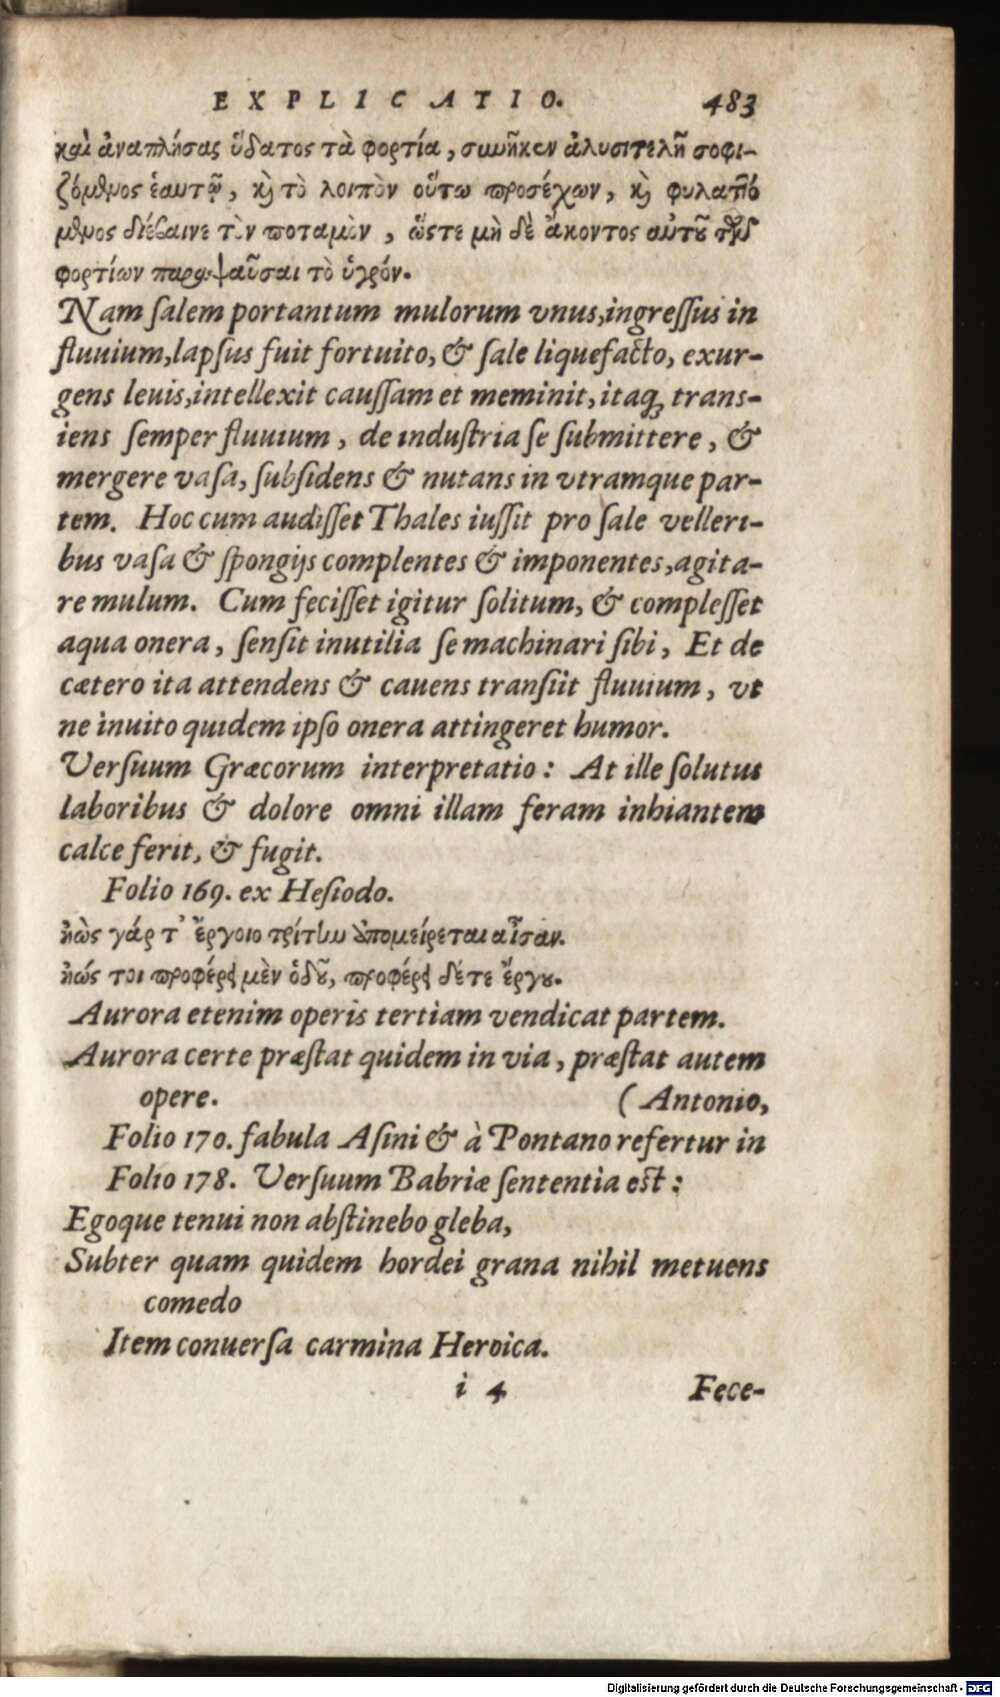 EXPLICATIO. 483
καὶ ἀναπλήσας ὕδατος τὰ φορτία, συνῆκεν ἀλυσιτελῆ σοφι-
ζόμενος ἑαυτῷ, κὶ τὸ λοιπὸν οὕτω προσέχων, κὶ φυλαττό
μενος διέβαινε τὸν ποταμὸν, ὥστε μὴ δὲ ἄκοντος αὐτοῦ τῶν
φορτίων παραψαῦσαι τὸ ὑγρόν.
Nam ſalem portantum mulorum vnus,ingreſſus in
fluuium,lapſus fuit fortuito, & ſale liquefacto, exur-
gens leuis,intellexit cauſſam et meminit, itaq; trans-
iens ſemper fluuium, de induſtria ſe ſubmittere, &
mergere vaſa, ſubſidens & nutans in vtramque par-
tem. Hoc cum audiſſet Thales iuſſit pro ſale velleri-
bus vaſa & ſpongijs complentes & imponentes,agita-
re mulum. Cum feciſſet igitur ſolitum, & compleſſet
aqua onera, ſenſit inutilia ſe machinari ſibi, Et de
cætero ita attendens & cauens tranſiit fluuium, vt
ne inuito quidem ipſo onera attingeret humor.
Verſuum Græcorum interpretatio: At ille ſolutus
laboribus & dolore omni illam feram inhiantem
calce ferit, & fugit.
Folio 169. ex Heſiodo.
ἠὼς γάρ τ' ἔργοιο τρίτην ἀπομείρεται αἶσαν.
ἠώς τοι προφέρει μὲν ὁδοῦ, προφέρει δέ τε ἔργου.
Aurora etenim operis tertiam vendicat partem.
Aurora certe præſtat quidem in via, præſtat autem
opere. (Antonio,
Folio 170. fabula Aſini & à Pontano refertur in
Folio 178. Verſuum Babriæ ſententia eſt:
Egoque tenui non abſtinebo gleba,
Subter quam quidem hordei grana nihil metuens
comedo
Item conuerſa carmina Heroica.
i 4 Fece-
Digitalisierung gefördert durch die Deutsche Forschungsgemeinschaft - DFG